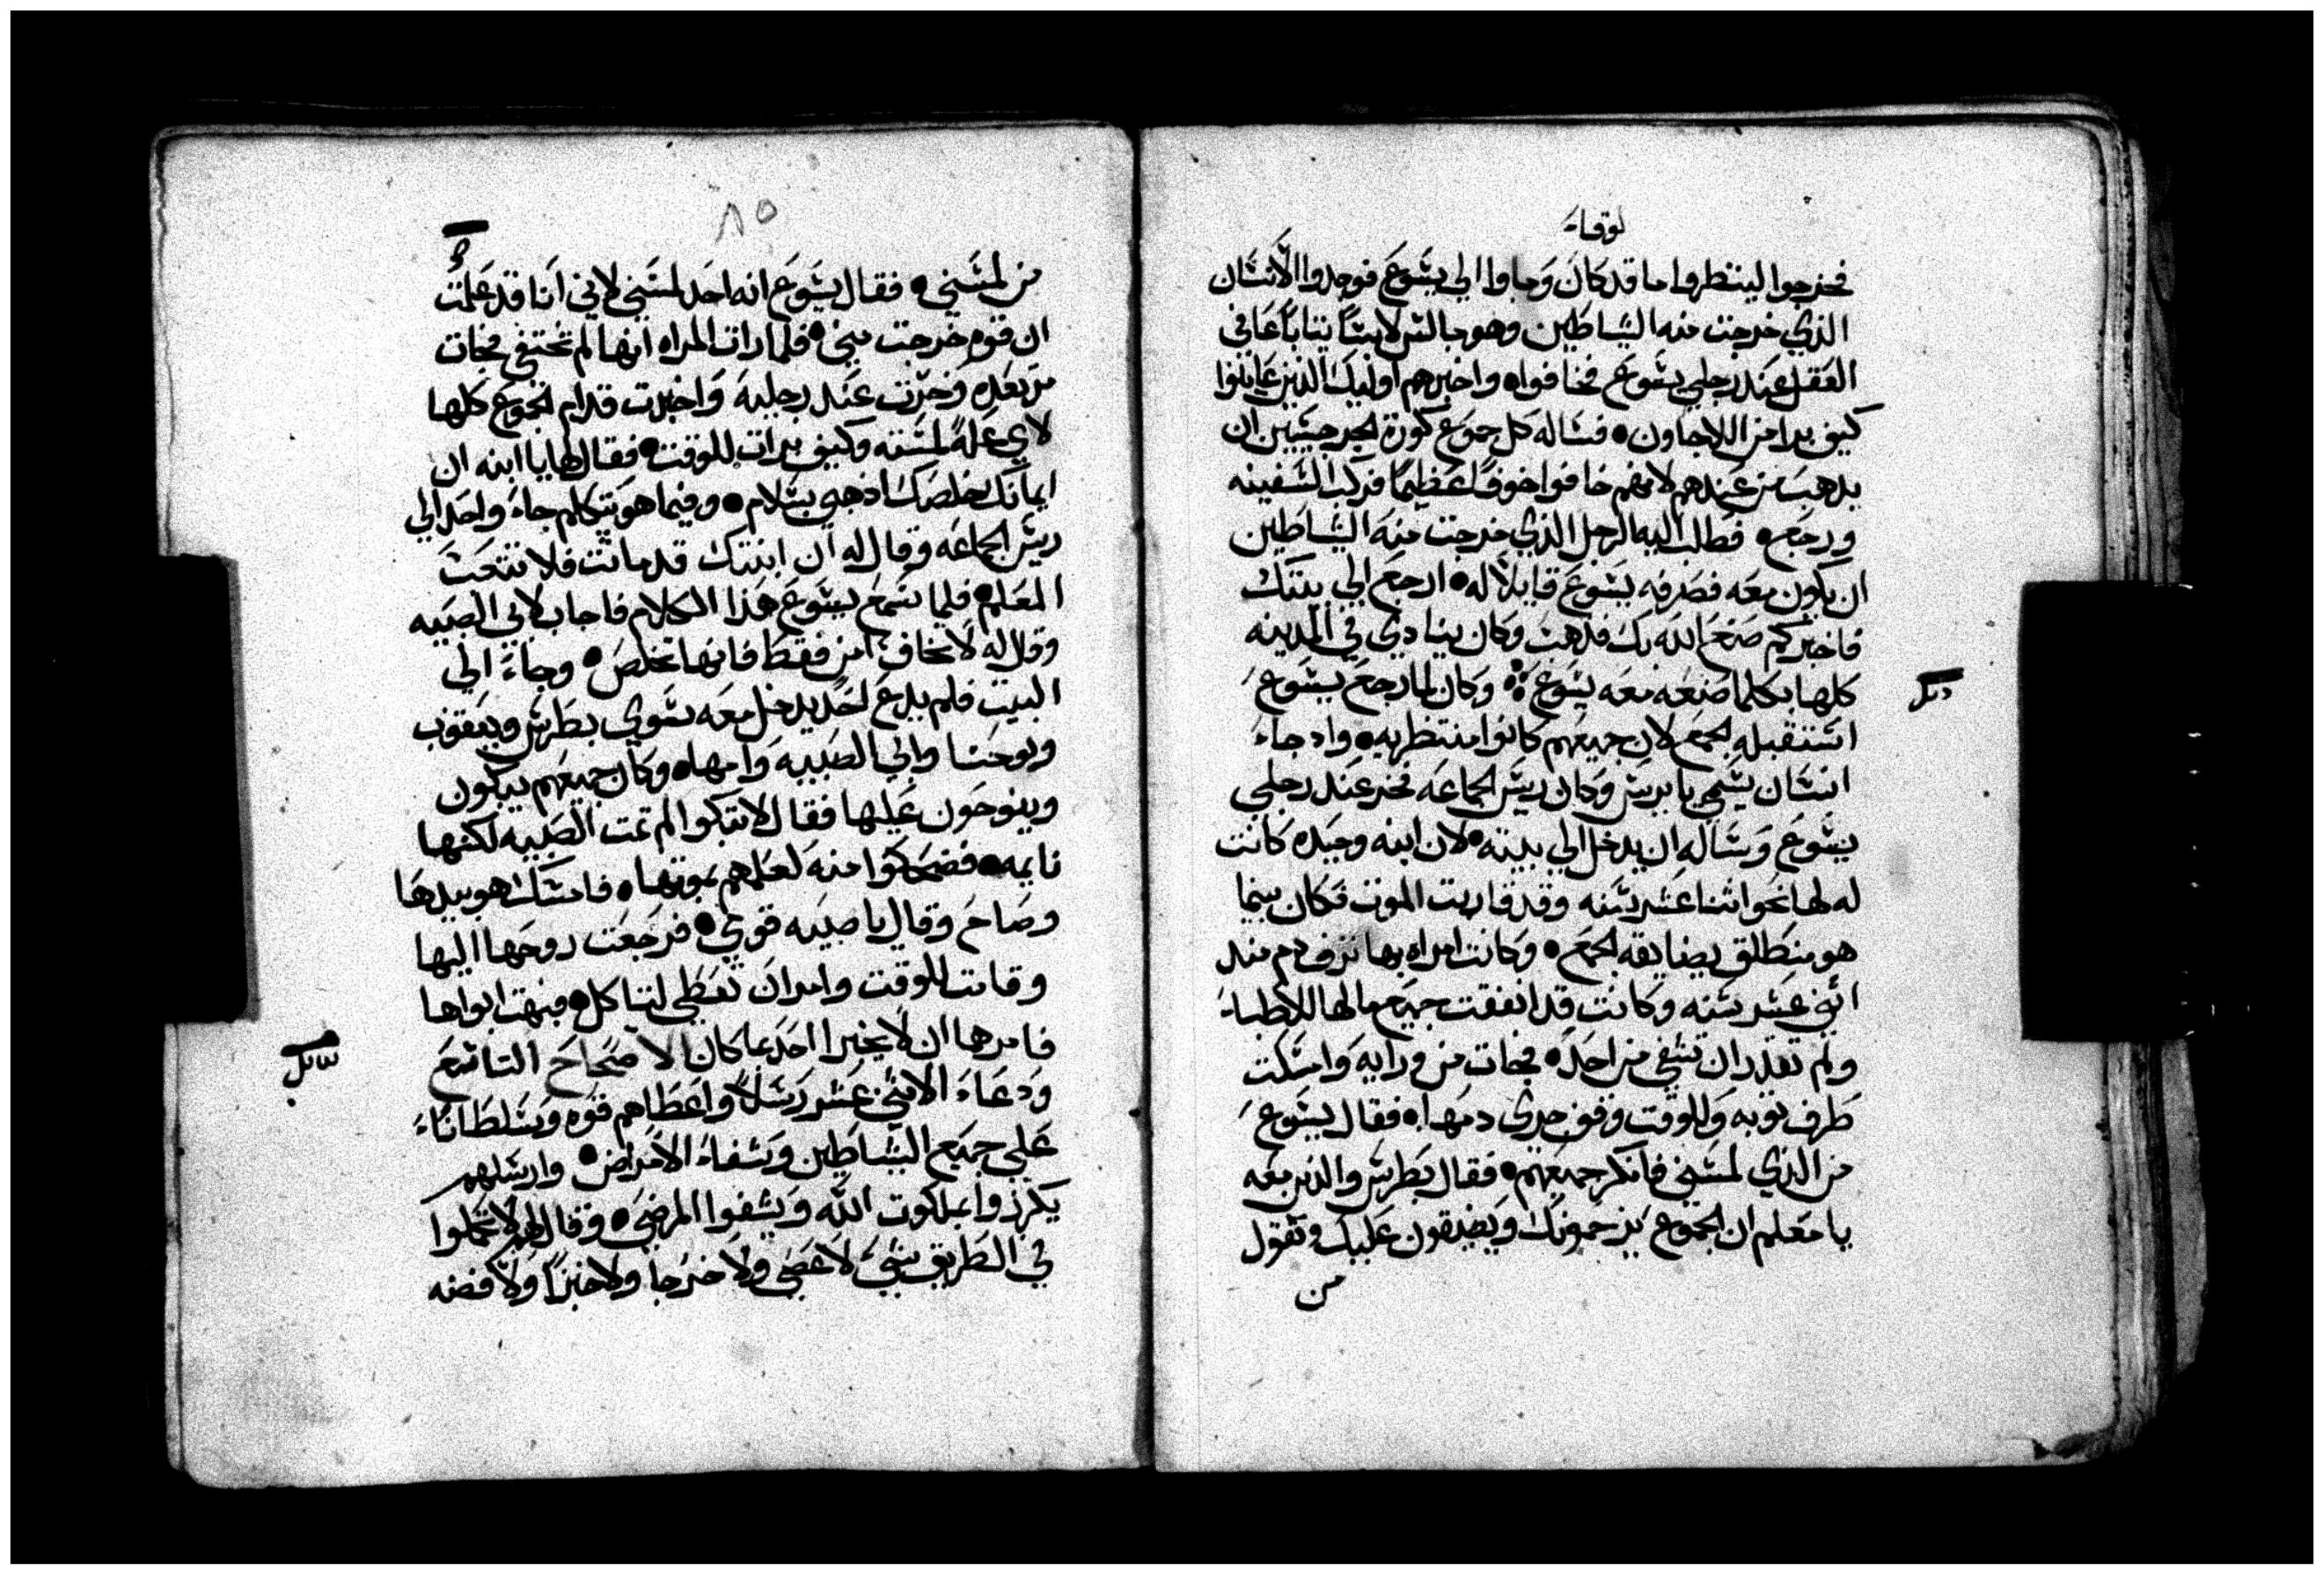 لوقاء
فخرجوا لينظروا ما قد كان وجاوا الي يشوع فوجدوا الانسان
الذي خرجت منه الشياطين وهو جالس لابسًا ثيابًا عافي
العقل عند رجلي يشوع فخافوا، واخبرهم اوليك الذين عاينوا
كيف برا من اللاجاون • فساله كل جموع كورة الجرجسيين ان
يدهب من عندهم لانهم خافوا خوفًا عظيمًا فركب السفينه
ورجع • فطلب اليه الرجل الذي خرجت منه الشياطين
ان يكون معه فصرفه يشوع قايلًا له • ارجع الي بيتك
فاخبركم صنع الله بك فدهب وكان ينادي في المدينه
كلها بكلما صنعه معه يشوع ܀ وكان لما رجع يشوع
استقبله الجمع لان جميعهم كانوا منتظريه • واد جاء
انسان يسمي يايرس وكان ريس الجماعه فخر عند رجلي
يشوع وساله ان يدخل الي بيته • لان ابنه وحيده كانت
له لها نحو اثنا عشر سنه وقد قاربت الموت فكان بينما
هو منطلق يضايقه الجمع • وكانت امراه بها نزف دم مند
اثني عشر سنه وكانت قد انفقت جميع مالها للاطباء
ولم تقدر ان تشفي من احد • فجات من ورايه وامسكت
طرف ثوبه وللوقت وقف جري دمها • فقال يشوع
من الذي لمسني فانكر جميعهم • فقال بطرس والذين معه
يا معلم ان الجموع يزحمونك ويضيقون عليك وتقول
من
٨٥
من لمسني • فقال يشوع انه احد لمسني لاني انا قد علمت
ان قوه خرجت مني • فلما رات المراه انها لم تختفي فجات
مرتعده وخرت عند رجليه واخبرت قدام الجموع كلها
لاي علة لمسته وكيف برات للوقت • فقال لها يا ابنه ان
ايمانك خلصك ادهبي بسلام • وفيما هو يتكلم جاء واحد الي
ريس الجماعه وقال له ان ابنتك قد ماتت فلا تتعب
المعلم • فلما سمع يشوع هذا الكلام فاجاب لابي الصبيه
وقال له لا تخاف امن فقط فانها تخلص • وجاء الي
البيت فلم يدع احد يدخل معه سوي بطرس ويعقوب
ويوحنا وابي الصبيه وامها • وكان جميعهم يبكون
وينوحون عليها فقال لا تبكوا لم تمت الصبيه لكنها
نايمه • فضحكوا منه لعلمهم بموتها • فامسك هو بيدها
وصاح وقال يا صبيه قومي • فرجعت روحها اليها
وقامت للوقت وامر ان تعطي لتاكل • فبهت ابواها
فامرهما ان لا يخبرا احد بما كان الاصحاح التاسع
ودعاء الاثني عشر رسلًا واعطاهم قوه وسلطانًا
علي جميع الشياطين وشفاء الامراض • وارسلهم
يكرزوا بملكوت الله ويشفوا المرضي • وقال لهم لا تحملوا
في الطريق شيء لا عصي ولا خرجا ولا خبزًا ولا فضه